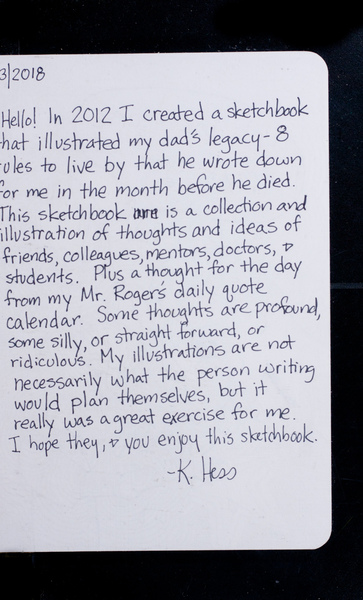 3/2018
Hello! In 2012 I created a sketchbook
hat illustrated my dad's legacy - 8
ules to live by that he wrote down
for me in the month before he died.
This sketchbook is a collection and
illustration of thoughts and ideas of
friends, colleagues, mentors, doctors, &
students. Plus a thought for the day
from my Mr. Roger's daily quote
calendar. Some thoughts are profound,
some silly, or straight forward, or
ridiculous. My illustrations are not
necessarily what the person writing
would plan themselves, but it
really was a great exercise for me.
I hope they, & you enjoy this sketchbook.
-K. Hess